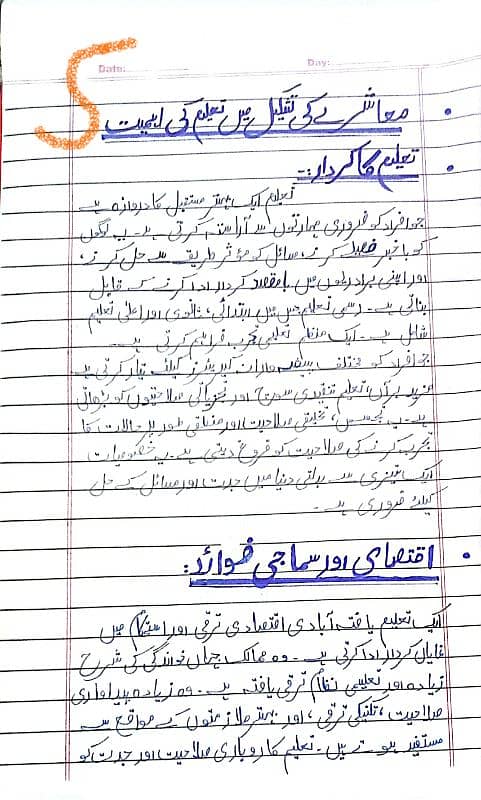 Date: Day:
5
معاشرے کی تشکیل میں تعلیم کی اہمیت
تعلیم کا کردار:-
تعلیم ایک بہتر مستقبل کا دروازہ ہے
جو افراد کو ضروری مہارتوں سے آراستہ کرتی ہے۔ یہ لوگوں
کو باخبر فیصلے کرنے، مسائل کو مؤثر طریقے سے حل کرنے،
اور اپنی برادریوں میں بامقصد کردار ادا کرنے کے قابل
بناتی ہے۔ رسمی تعلیم جس میں ابتدائی، ثانوی اور اعلیٰ تعلیم
شامل ہے۔ ایک منظم تعلیمی تجربہ فراہم کرتی ہے
جو افراد کو مختلف پیشہ ورانہ کیریئرز کیلئے تیار کرتی ہے
مزید برآں، تعلیم تنقیدی سوچ اور تجزیاتی صلاحیتوں کو بڑھاتی
ہے۔ یہ تجسس، تخلیقی صلاحیت اور منطقی طور پر حالات کا
تجزیہ کرنے کی صلاحیت کو فروغ دیتی ہے۔ یہ خصوصیات
ایک تیزی سے بدلتی دنیا میں جدت اور مسائل کے حل
کیلئے ضروری ہے۔
اقتصادی اور سماجی فوائد:
ایک تعلیم یافتہ آبادی اقتصادی ترقی اور استحکام میں
نمایاں کردار ادا کرتی ہے۔ وہ ممالک جہاں خواندگی کی شرح
زیادہ اور تعلیمی نظام ترقی یافتہ ہے۔ وہ زیادہ پیداواری
صلاحیت، تکنیکی ترقی، اور بہتر ملازمتوں کے مواقع سے
مستفید ہوتے ہیں۔ تعلیم کاروباری صلاحیت اور جدت کو